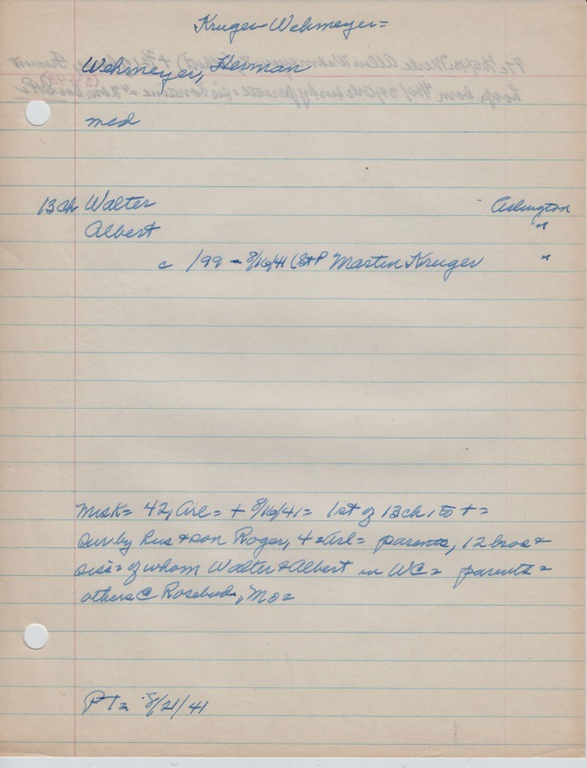 Kruger-Wehmeyer=
Wehmeyer, Herman
med
13ch Walter Arlington
Albert "
c 199 - 8/16/41 (St P Martin Kruger "
= 42, Arl= + 8/16/41= 1st of 13ch, to + =
surv by hus & son Roger, 4=Arl= parents, 12 bros &
sis= of whom Walter & Albert in WC= parents &
others @ Rosebud, Mo=
PT= 8/21/41